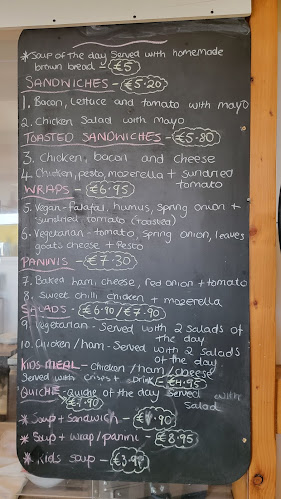 * Soup of the day Served with homemade
brown bread - €5
SANDWICHES - €5.20
1. Bacon, lettuce and tomato with mayo
2. Chicken Salad with mayo
TOASTED SANDWICHES - €5.80
3. Chicken, bacon and cheese
4. Chicken, pesto, mozerella + sundried
tomato
WRAPS - €6.95
5. Vegan - Falafal, humus, Spring onion +
sundried tomato (toasted)
6. Vegetarian - tomato, Spring onion, leaves
goats cheese + Pesto
PANINIS - €7.30
7. Baked ham, cheese, red onion + tomato
8. Sweet chilli chicken + mozerella
SALADS - €6.80/€7.90
9. Vegetarian - Served with 2 Salads of
the day
10. Chicken/ham - Served with 2 Salads
of the day
KIDS MEAL - Chicken/ham/cheese
Served with crisps + Drink - €4.95
QUICHE - quiche of the day Served with
Salad
* Soup + Sandwich -
* Soup + wrap/panini - €8.95
* Kids soup -